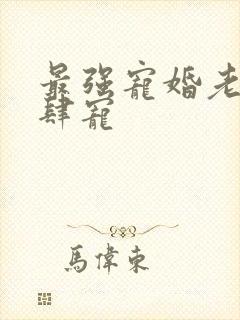 最强寵婚老
肆寵
馬偉東